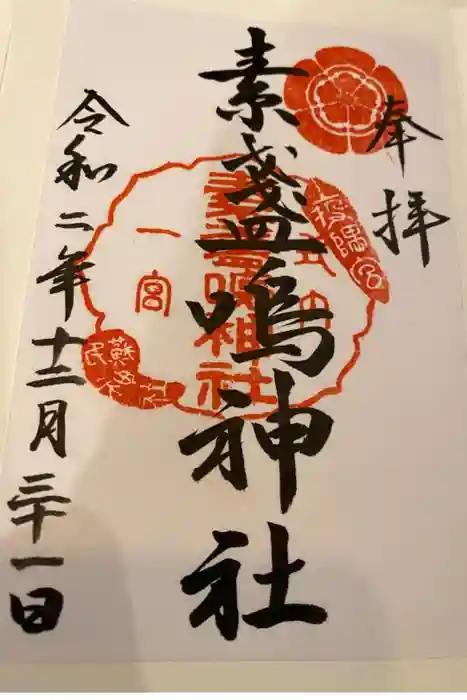 奉拝
素盞嗚神社
令和二年十二月三十一日
一宮
素盞嗚神社
蘇民